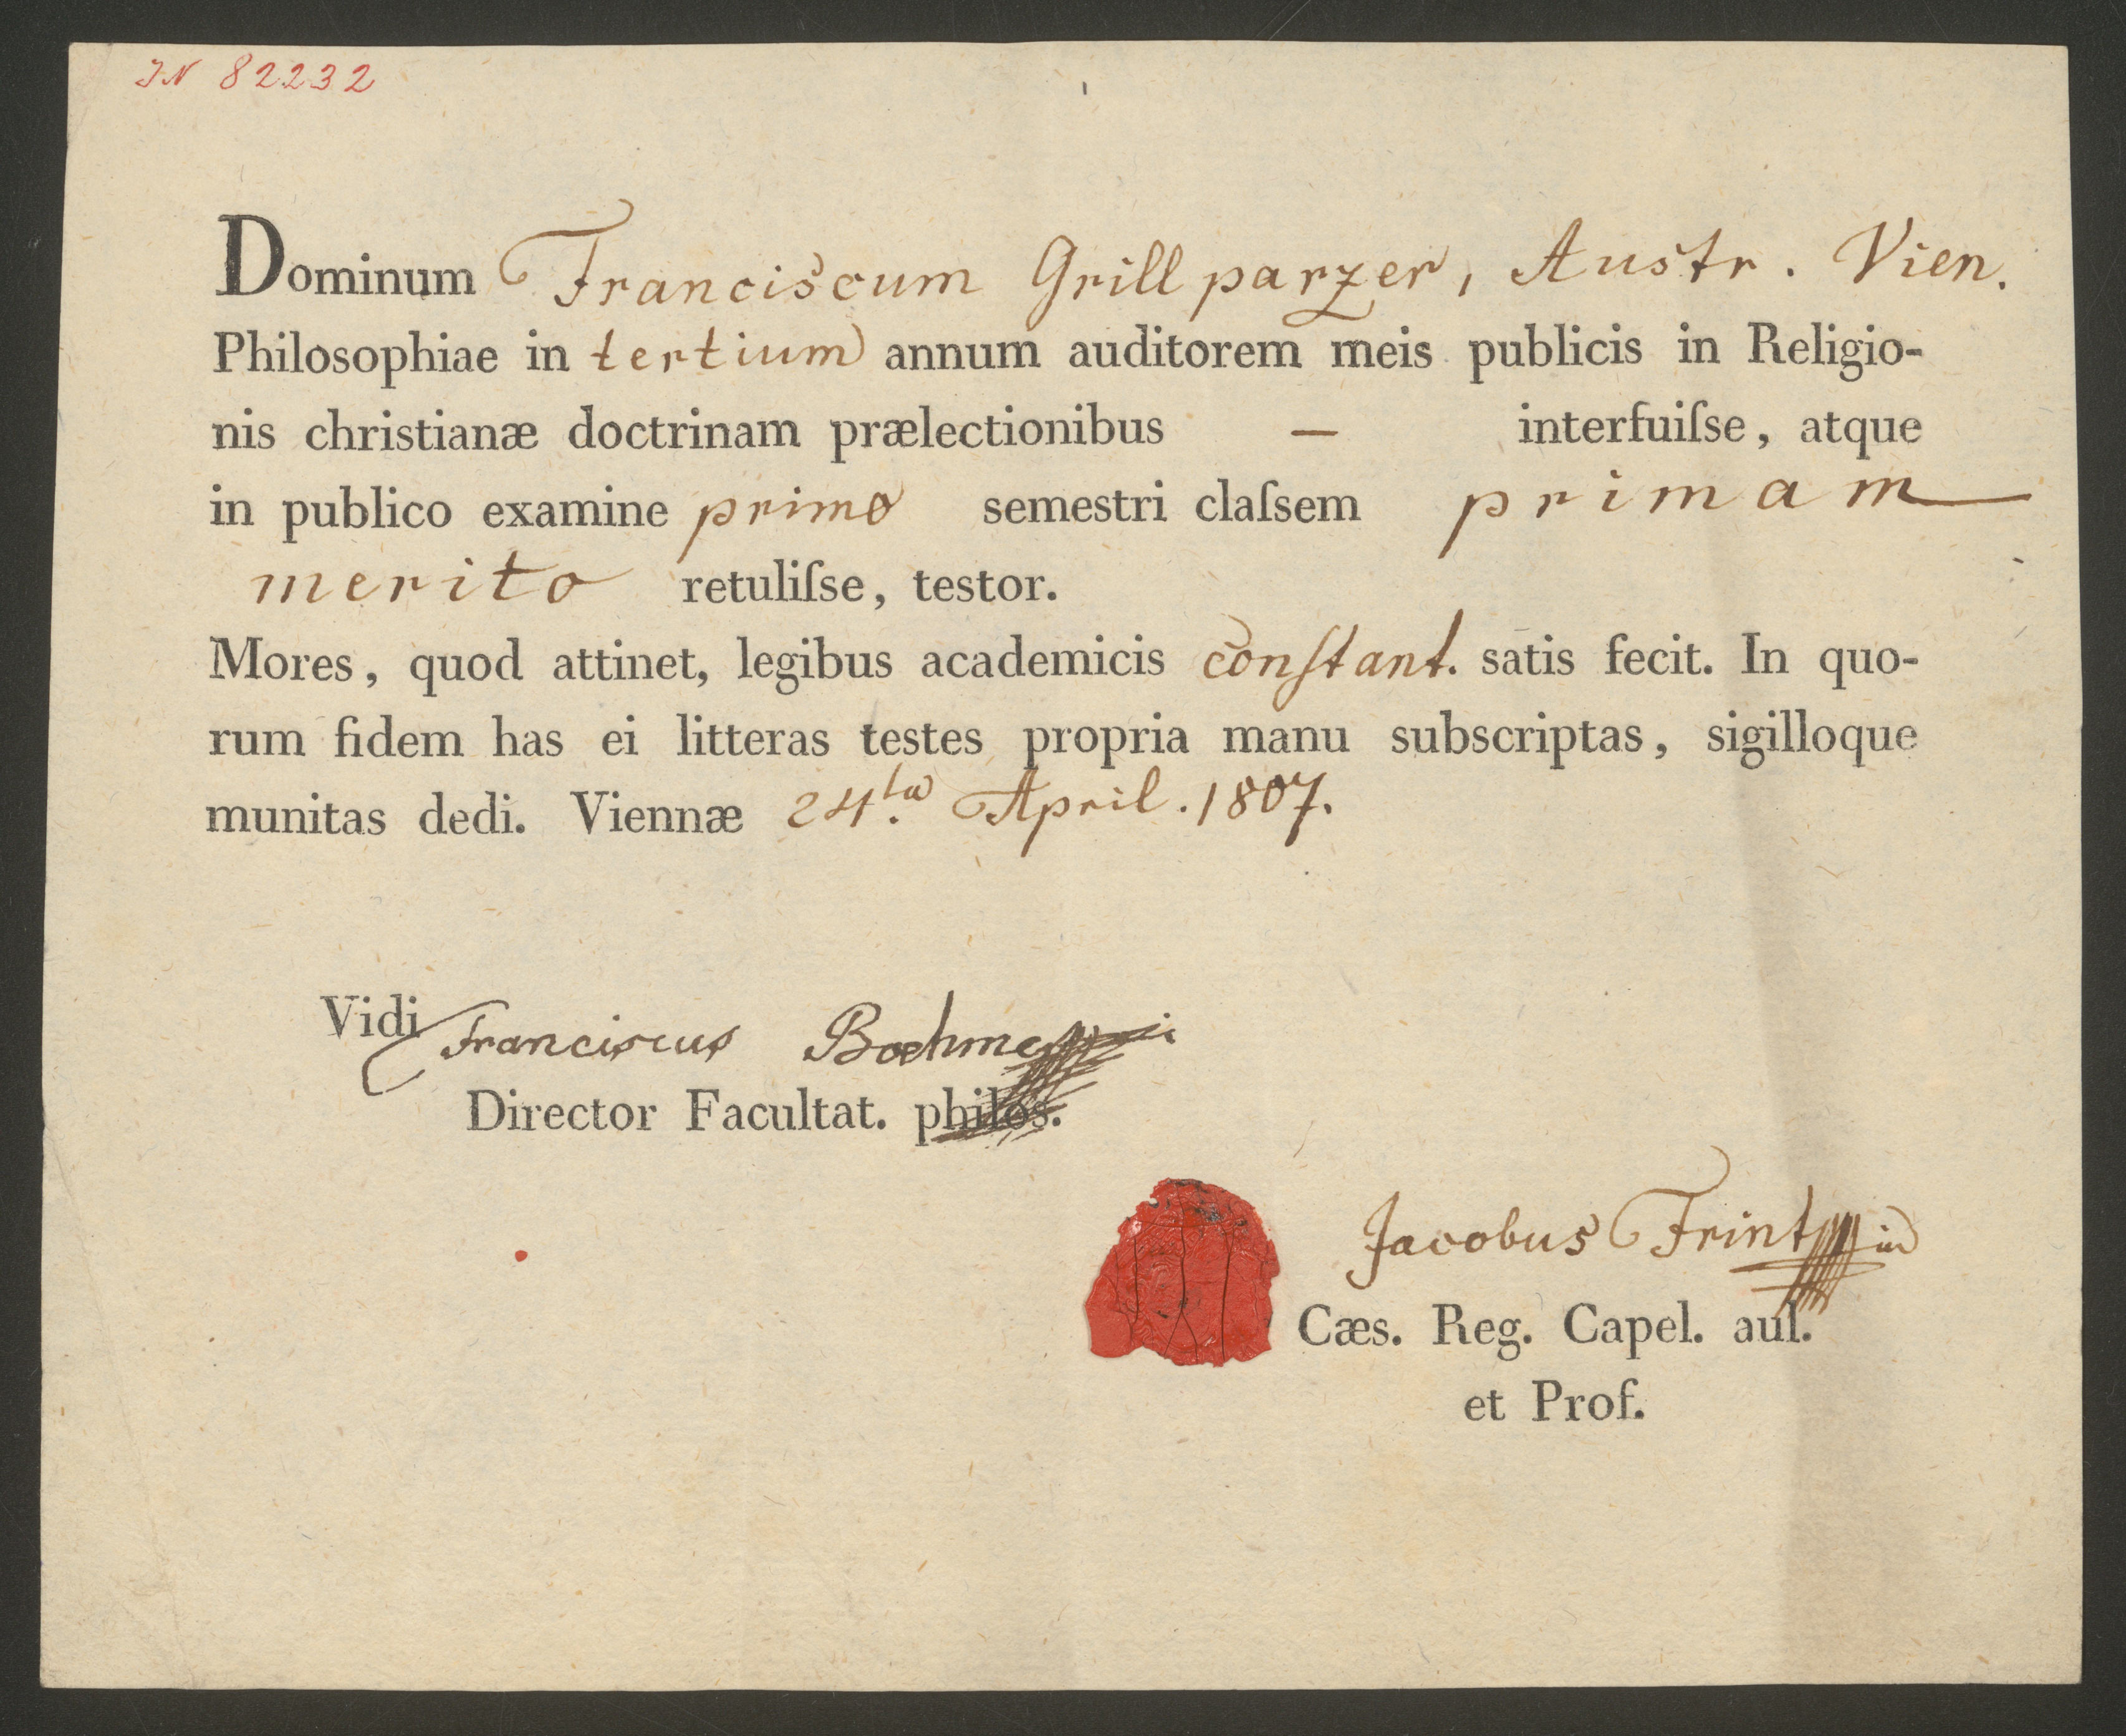 IN 82232
Dominum Franciscum Grillparzer, Austr. Vien.
Philosophiae in tertium annum auditorem meis publicis in Religio-
nis christianæ doctrinam prælectionibus — interfuiſse, atque
in publico examine primo semestri claſsem primam
merito retuliſse, testor.
Mores, quod attinet, legibus academicis conſtant. satis fecit. In quo-
rum fidem has ei litteras testes propria manu subscriptas, sigilloque
munitas dedi. Viennæ 24.ta April. 1807.
Vidi Franciscus Boehme
Director Facultat. philos.
Jacobus Frint
Cæs. Reg. Capel. aul.
et Prof.